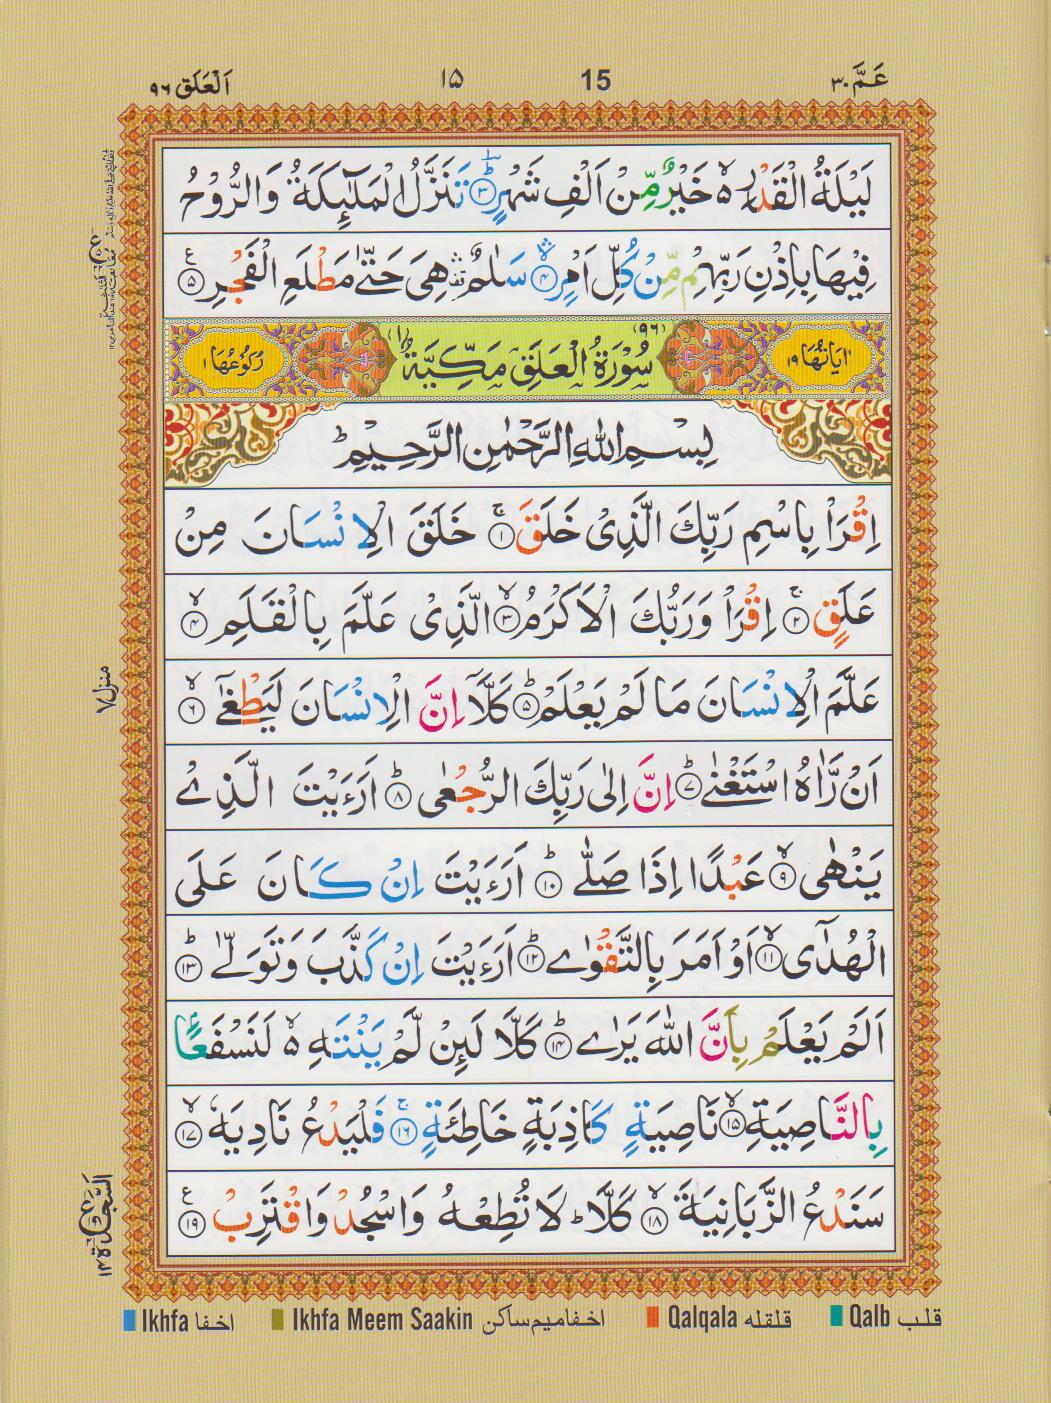 عَمَّ ٣٠ 15 ١٥ اَلْعَلَق ٩٦
لَيْلَةُ الْقَدْرِ ۙ خَيْرٌ مِّنْ اَلْفِ شَهْرٍ ؕ ﴿٣﴾ تَنَزَّلُ الْمَلٰٓئِكَةُ وَالرُّوْحُ
فِيْهَا بِاِذْنِ رَبِّهِمْ مِّنْ كُلِّ اَمْرٍ ۛ ﴿٤﴾ سَلٰمٌ ۛ هِىَ حَتّٰى مَطْلَعِ الْفَجْرِ ﴿٥﴾ ع
اٰيَاتُهَا ١٩ (٩٦) سُوْرَةُ الْعَلَقِ مَكِّيَّةٌ (١) رُكُوْعُهَا ١
بِسْمِ اللهِ الرَّحْمٰنِ الرَّحِيْمِ
اِقْرَاْ بِاسْمِ رَبِّكَ الَّذِىْ خَلَقَ ۚ ﴿١﴾ خَلَقَ الْاِنْسَانَ مِنْ
عَلَقٍ ۚ ﴿٢﴾ اِقْرَاْ وَرَبُّكَ الْاَكْرَمُ ۙ ﴿٣﴾ الَّذِىْ عَلَّمَ بِالْقَلَمِ ۙ ﴿٤﴾
عَلَّمَ الْاِنْسَانَ مَا لَمْ يَعْلَمْ ؕ ﴿٥﴾ كَلَّاۤ اِنَّ الْاِنْسَانَ لَيَطْغٰٓى ۙ ﴿٦﴾
اَنْ رَّاٰهُ اسْتَغْنٰى ؕ ﴿٧﴾ اِنَّ اِلٰى رَبِّكَ الرُّجْعٰى ؕ ﴿٨﴾ اَرَءَيْتَ الَّذِىْ
يَنْهٰى ۙ ﴿٩﴾ عَبْدًا اِذَا صَلّٰى ؕ ﴿١٠﴾ اَرَءَيْتَ اِنْ كَانَ عَلَى
الْهُدٰٓى ۙ ﴿١١﴾ اَوْ اَمَرَ بِالتَّقْوٰى ؕ ﴿١٢﴾ اَرَءَيْتَ اِنْ كَذَّبَ وَتَوَلّٰى ؕ ﴿١٣﴾
اَلَمْ يَعْلَمْ بِاَنَّ اللهَ يَرٰى ؕ ﴿١٤﴾ كَلَّا لَئِنْ لَّمْ يَنْتَهِ ۙ لَنَسْفَعًۢا
بِالنَّاصِيَةِ ۙ ﴿١٥﴾ نَاصِيَةٍ كَاذِبَةٍ خَاطِئَةٍ ۚ ﴿١٦﴾ فَلْيَدْعُ نَادِيَهٗ ۙ ﴿١٧﴾
سَنَدْعُ الزَّبَانِيَةَ ۙ ﴿١٨﴾ كَلَّا ؕ لَا تُطِعْهُ وَاسْجُدْ وَاقْتَرِبْ ﴿١٩﴾ ع
منزل ٧
السَّجْدَة ١٤
Ikhfa اخفا Ikhfa Meem Saakin اخفا میم ساکن Qalqala قلقله Qalb قلب